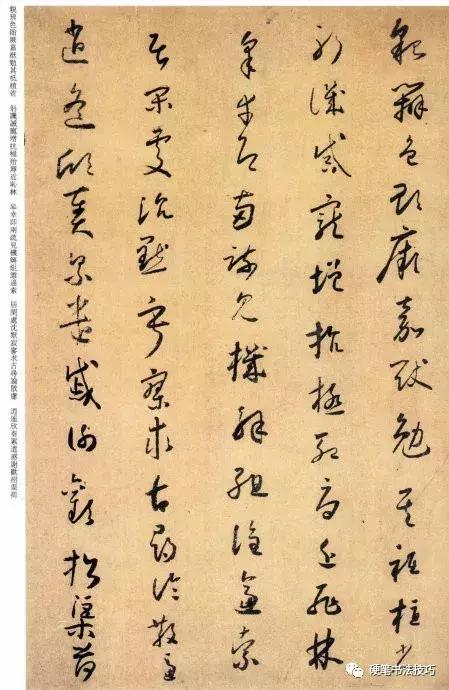 貌辨色貽厥嘉猷勉其祗植省
躬譏誡寵增抗極殆辱近恥林
皋幸即兩疏見機解組誰逼索
居閑處沈默寂寥求古尋論散慮
逍遙欣奏累遣慼謝歡招渠荷
貌辨色貽厥嘉猷勉其祗植省 躬譏誡寵增抗極殆辱近恥林 皋幸即兩疏見機解組誰逼索 居閑處沈默寂寥求古尋論散慮 逍遙欣奏累遣慼謝歡招渠荷
硬笔书法技巧